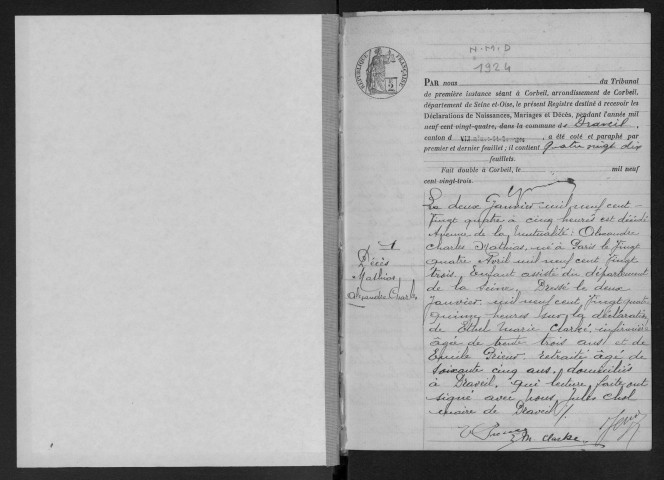 N.M.D
1924
RÉPUBLIQUE FRANÇAISE
PAR nous du Tribunal
de première instance séant à Corbeil, arrondissement de Corbeil,
département de Seine-et-Oise, le présent Registre destiné à recevoir les
Déclarations de Naissances, Mariages et Décès, pendant l'année mil
neuf cent vingt-quatre, dans la commune de Draveil,
canton d , a été coté et paraphé par
premier et dernier feuillet; il contient quatre vingt dix
feuillets.
Fait double à Corbeil, le mil neuf
cent vingt-trois.
1
Décès
Mathias
Alexandre Charles
Le deux Janvier mil neuf cent
vingt quatre à cinq heures est décédé
Avenue de la Mutualité: Alexandre
Charles Mathias, né à Paris le vingt
quatre Avril mil neuf cent vingt
trois. Enfant assisté du département
de la Seine. Dressé le deux
Janvier mil neuf cent vingt quatre
quinze heures sur la déclaration
de Ethel Marie Clarke infirmière
âgée de trente trois ans et de
Emile retraité âgé de
soixante cinq ans, domiciliés
à Draveil, qui lecture faite ont
signé avec nous Jules Chol
maire de Draveil /.
E M Clarke